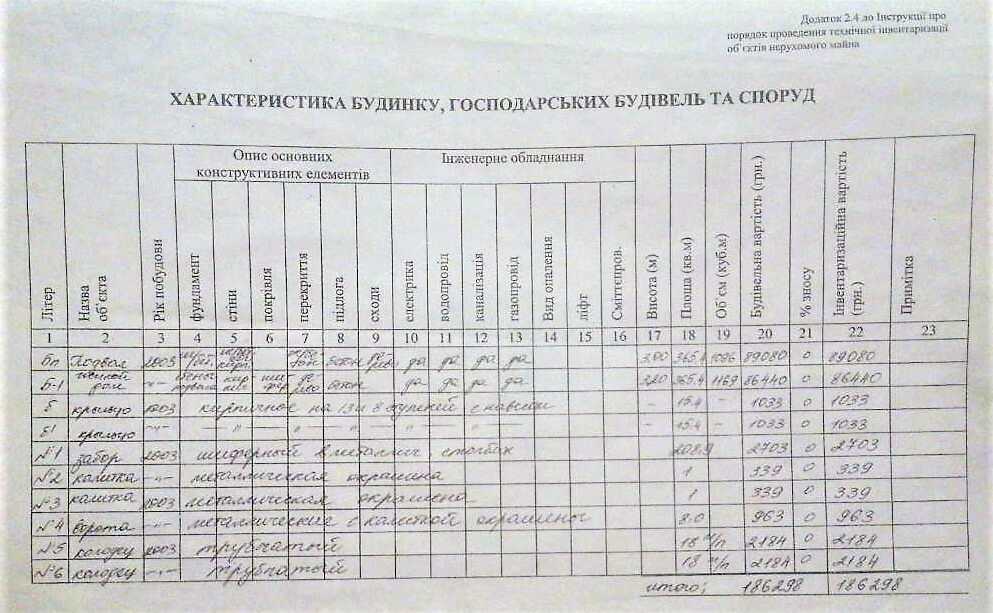 Додаток 2.4 до Інструкції про
порядок проведення технічної інвентаризації
об'єктів нерухомого майна
ХАРАКТЕРИСТИКА БУДИНКУ, ГОСПОДАРСЬКИХ БУДІВЕЛЬ ТА СПОРУД
Літер Назва об'єкта Рік побудови Опис основних конструктивних елементів Інженерне обладнання Висота (м) Площа (кв.м) Об'єм (куб.м) Будівельна вартість (грн.) % зносу Інвентаризаційна вартість (грн.) Примітка
фундамент стіни покрівля перекриття підлога сходи електрика водопровід каналізація газопровід Вид опалення ліфт Сміттєпров.
1 2 3 4 5 6 7 8 9 10 11 12 13 14 15 16 17 18 19 20 21 22 23
Бп Подвал 2003 бетон да да да да 3.00 365.4 1096 89080 0 89080
Б-1 жилой дом -"- шифер бетон да да да да 3.20 365.4 1169 86440 0 86440
б крыльцо 2003 кирпичное на 13 и 8 ступней с навесом - 15.4 - 1033 0 1033
б1 крыльцо -"- -"- - 15.4 - 1033 0 1033
№1 забор 2003 шиферный в металлич. столбах 208.9 2703 0 2703
№2 калитка -"- металлическая окрашена 1 339 0 339
№3 калитка 2003 металлическая окрашена 1 339 0 339
№4 ворота -"- металлические с калиткой окрашены 8.0 963 0 963
№5 колодец 2003 трубчатый 18 м/п 2184 0 2184
№6 колодец -"- трубчатый 18 м/п 2184 0 2184
итого: 186298 186298